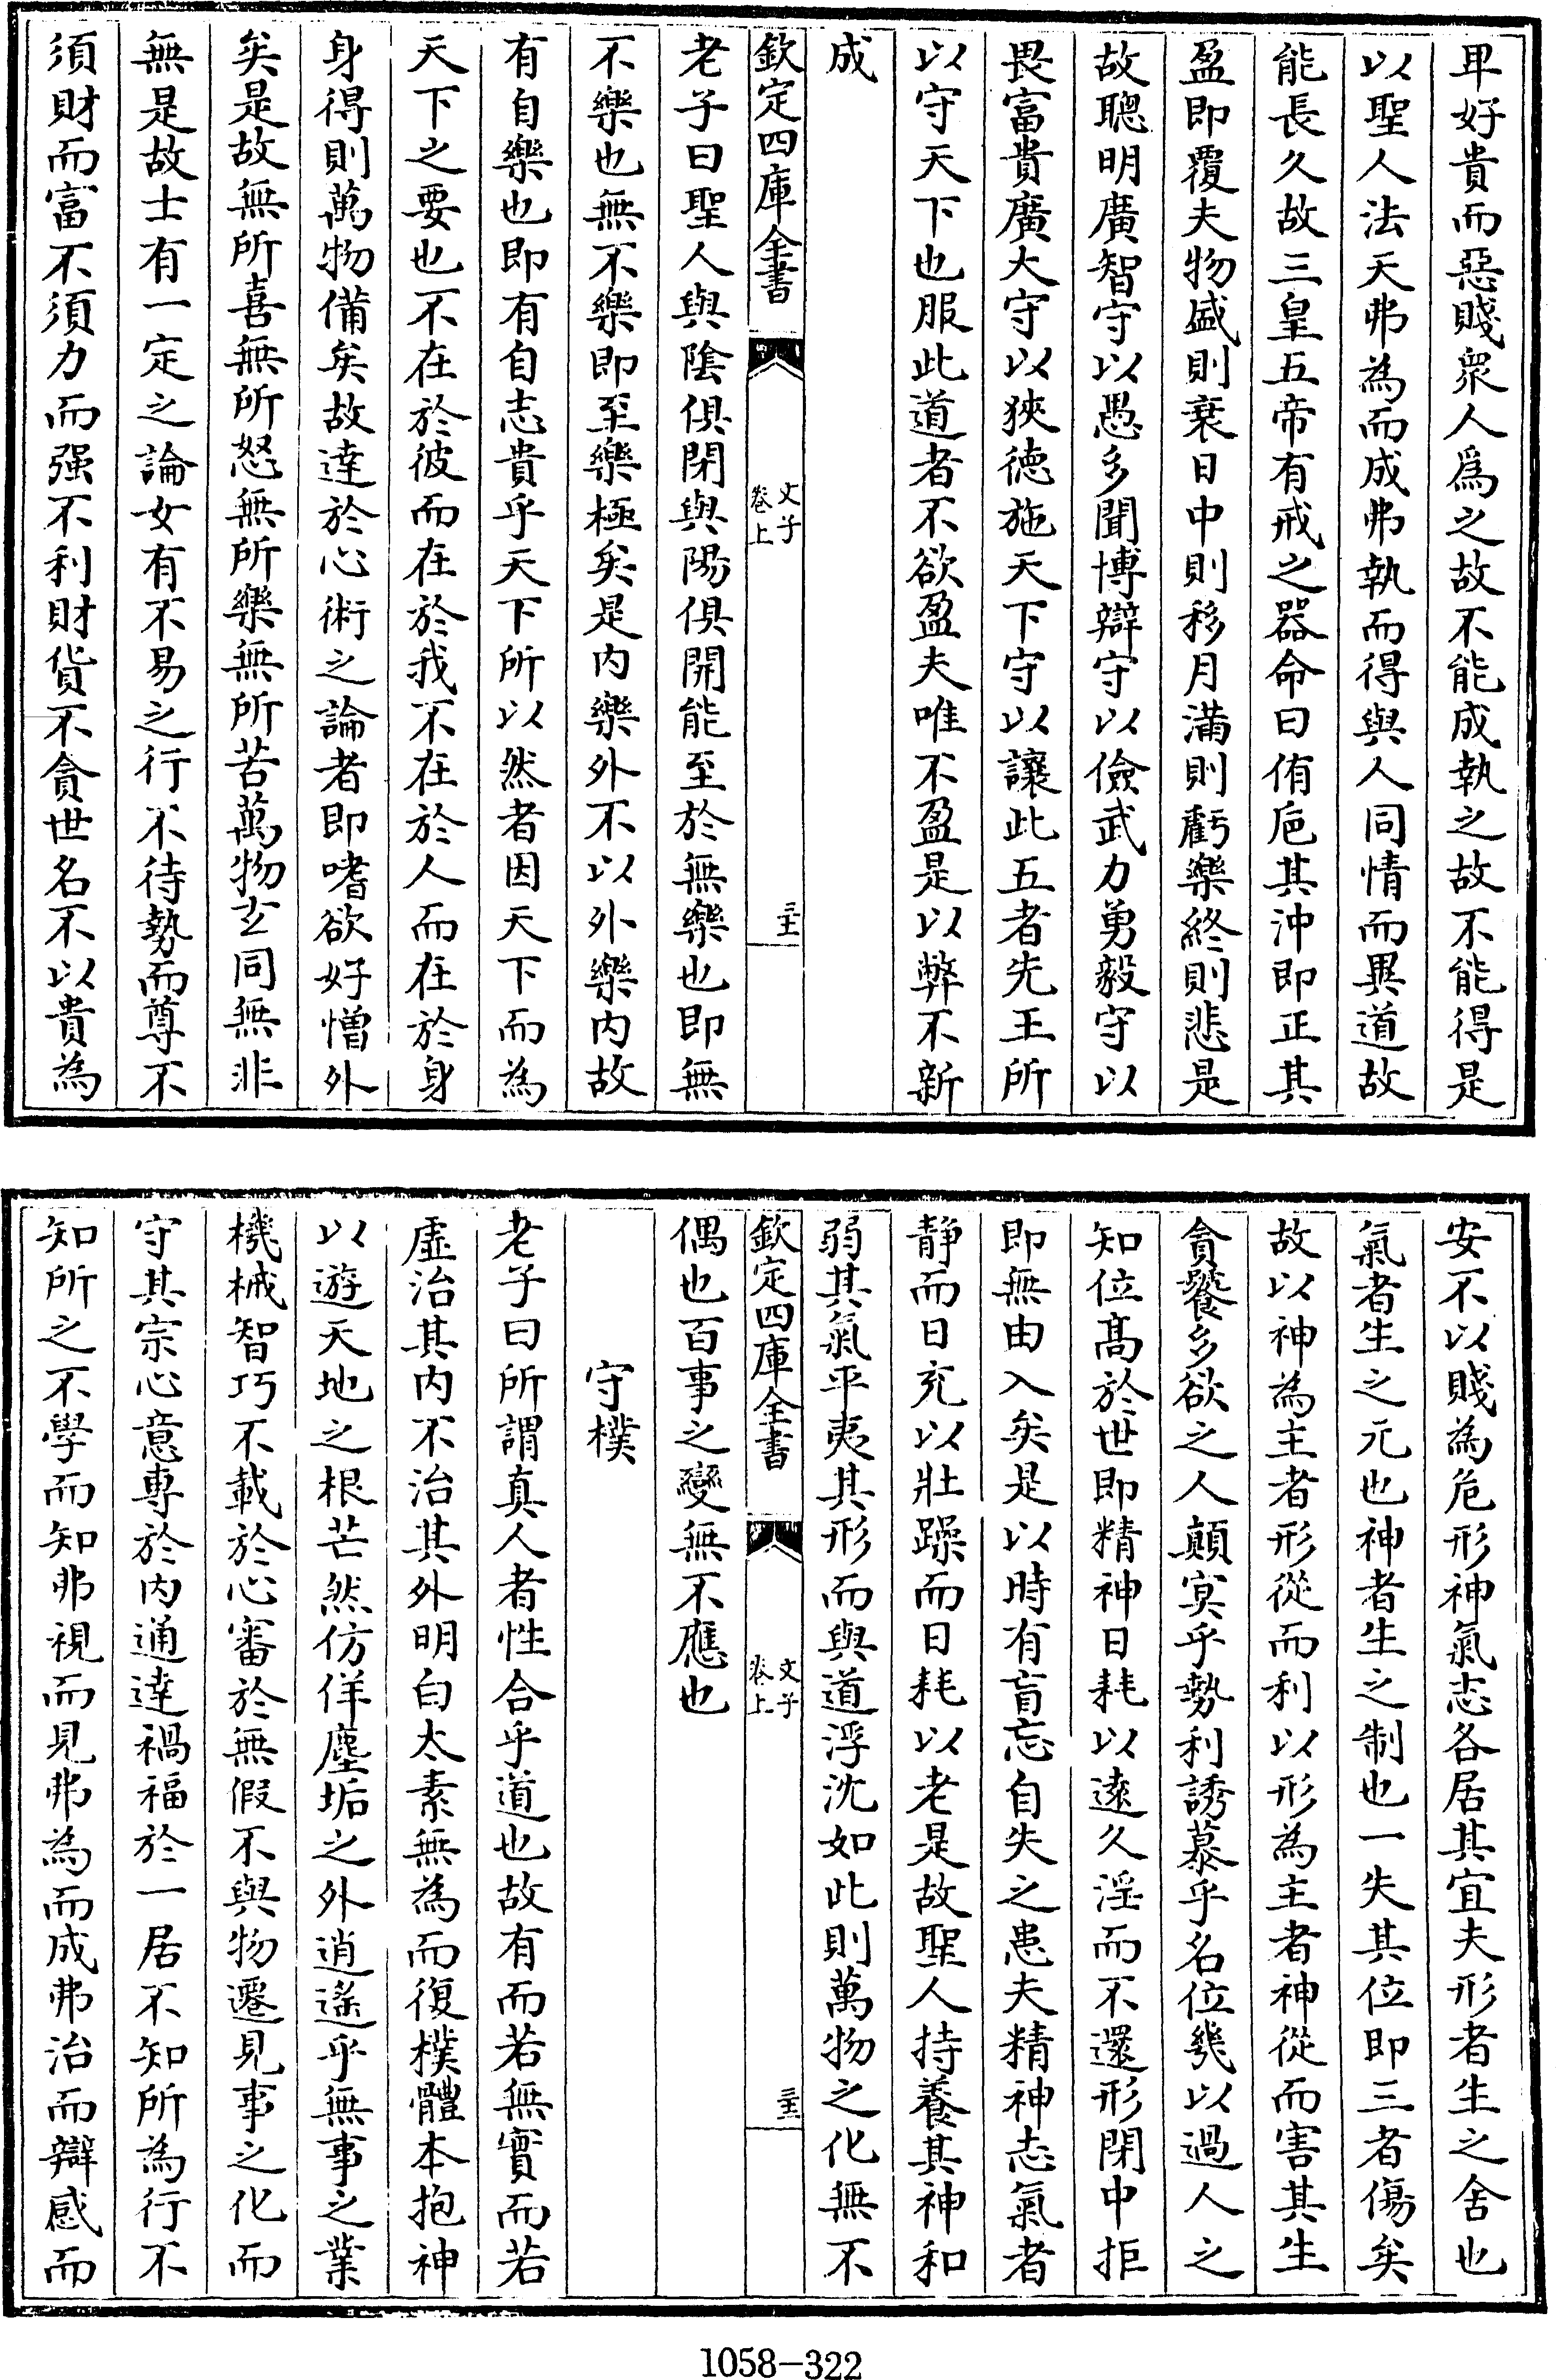 卑好貴而惡賤衆人爲之故不能成執之故不能得是
以聖人法天弗為而成弗執而得與人同情而異道故
能長久故三皇五帝有戒之器命曰侑巵其沖即正其
盈即覆夫物盛則衰日中則移月滿則虧樂終則悲是
故聰明廣智守以愚多聞博辯守以儉武力勇毅守以
畏富貴廣大守以狹徳施天下守以讓此五者先王所
以守天下也服此道者不欲盈夫唯不盈是以弊不新
成
欽定四庫全書
文子
卷上
老子曰聖人與隂俱閉與陽俱開能至於無樂也即無
不樂也無不樂即至樂極矣是内樂外不以外樂内故
有自樂也即有自志貴乎天下所以然者因天下而為
天下之要也不在於彼而在於我不在於人而在於身
身得則萬物備矣故達於心術之論者即嗜欲好憎外
矣是故無所喜無所怒無所樂無所苦萬物玄同無非
無是故士有一定之論女有不易之行不待勢而尊不
須財而富不須力而强不利財貨不貪世名不以貴為
安不以賤為危形神氣志各居其宜夫形者生之舍也
氣者生之元也神者生之制也一失其位即三者傷矣
故以神為主者形從而利以形為主者神從而害其生
貪饕多欲之人顛㝠乎勢利誘慕乎名位㡬以過人之
知位髙於世即精神日耗以逺久淫而不還形閉中拒
即無由入矣是以時有盲忘自失之患夫精神志氣者
静而日充以壯躁而日耗以老是故聖人持養其神和
弱其氣平夷其形而與道浮沈如此則萬物之化無不
欽定四庫全書
文子
卷上
偶也百事之變無不應也
守樸
老子曰所謂真人者性合乎道也故有而若無實而若
虚治其内不治其外明白太素無為而復樸體本抱神
以遊天地之根芒然仿佯塵垢之外逍遥乎無事之業
機械智巧不載於心審於無假不與物遷見事之化而
守其宗心意専於内通達禍福於一居不知所為行不
知所之不學而知弗視而見弗為而成弗治而辯感而
1058-322